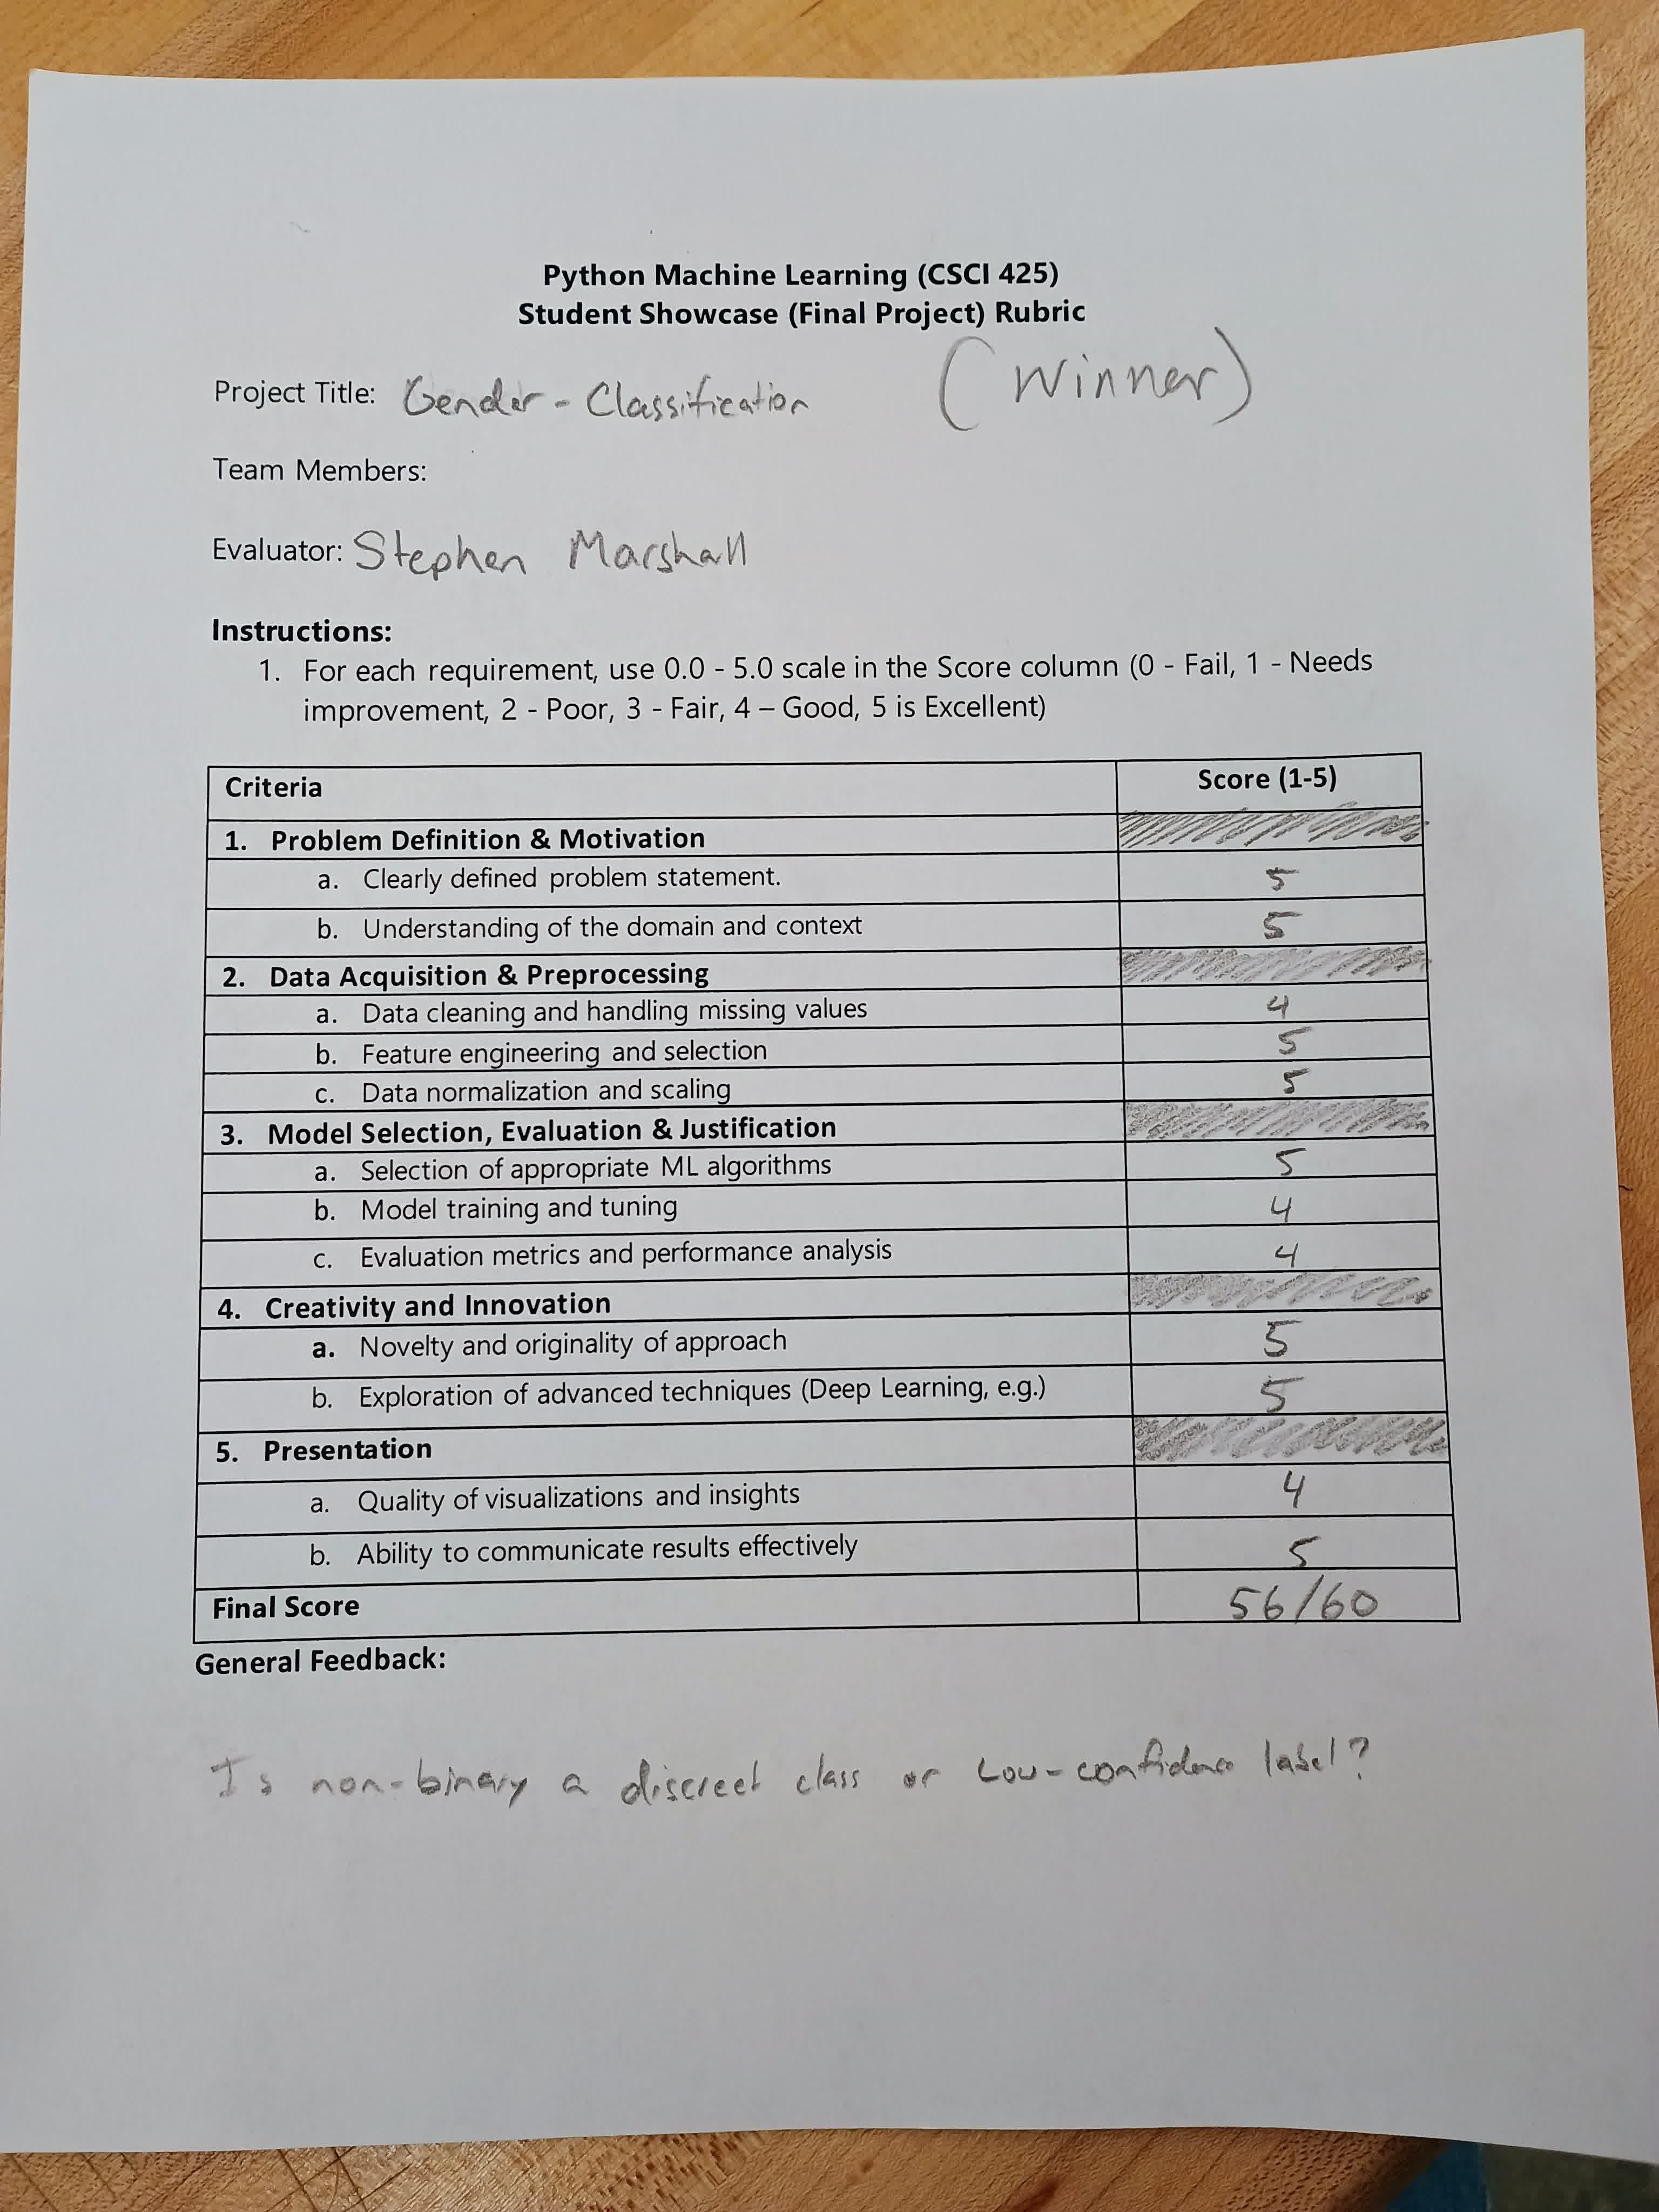 Python Machine Learning (CSCI 425)
Student Showcase (Final Project) Rubric
Project Title: Gender - Classification (Winner)
Team Members:
Evaluator: Stephen Marshall
Instructions:
1. For each requirement, use 0.0 - 5.0 scale in the Score column (0 - Fail, 1 - Needs
improvement, 2 - Poor, 3 - Fair, 4 – Good, 5 is Excellent)
Criteria Score (1-5)
1. Problem Definition & Motivation
a. Clearly defined problem statement. 5
b. Understanding of the domain and context 5
2. Data Acquisition & Preprocessing
a. Data cleaning and handling missing values 4
b. Feature engineering and selection 5
c. Data normalization and scaling 5
3. Model Selection, Evaluation & Justification
a. Selection of appropriate ML algorithms 5
b. Model training and tuning 4
c. Evaluation metrics and performance analysis 4
4. Creativity and Innovation
a. Novelty and originality of approach 5
b. Exploration of advanced techniques (Deep Learning, e.g.) 5
5. Presentation
a. Quality of visualizations and insights 4
b. Ability to communicate results effectively 5
Final Score 56/60
General Feedback:
Is non-binary a discreet class or Low-confidence label?